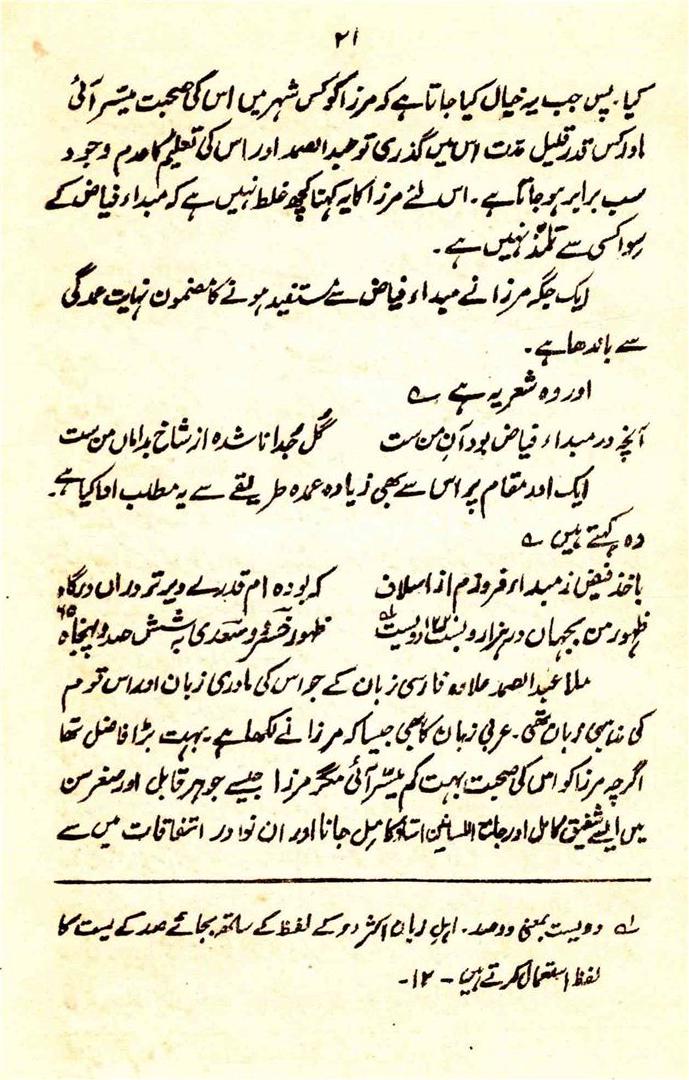 ۲۱
کیا۔ پس جب یہ خیال کیا جاتا ہے کہ مرزا کو کس شہر میں اس کی صحبت میسّر آئی
اور کس قدر قلیل مدّت اس میں گذری تو عبدالصمد اور اس کی تعلیم کا عدم وجود
سب برابر ہو جاتا ہے۔ اس لئے مرزا کا یہ کہنا کچھ غلط نہیں ہے کہ مبداء فیاض کے
سوا کسی سے تلمّذ نہیں ہے۔
ایک جگہ مرزا نے مبداء فیاض سے مستفید ہونے کا مضمون نہایت عمدگی
سے باندھا ہے۔
اور وہ شعر یہ ہے ؎
آنچہ در مبداء فیاض بود آنِ من ست گُل جُدا نا شدہ از شاخ بداماں من ست
ایک اور مقام پر اس سے بھی زیادہ عمدہ طریقے سے یہ مطلب ادا کیا ہے۔
وہ کہتے ہیں ؎
باخذِ فیض ز مبداء فزوزم از اسلاف کہ بودہ ام قدرے دیر تر دراں درگاہ
ظہور من بجہاں در ہزار و بست ۱۲۲۰ دویست ؎۱ ظہور خسرو و سعدی بہ شش صد و پنجاہ ۶۵۰
ملا عبدالصمد علاوہ فارسی زبان کے جو اس کی مادری زبان اور اس قوم
کی مذہبی زبان تھی۔ عربی زبان کا بھی جیسا کہ مرزا نے لکھا ہے۔ بہت بڑا فاضل تھا
اگرچہ مرزا کو اس کی صحبت بہت کم میسّر آئی مگر مرزا جیسے جوہر قابل اور صغر سن
میں ایسے شفیق کامل اور جامع اللسانین استاد کا مل جانا اور ان نوادر اتفاقات میں سے
؎۱ دویست بمعنی دو صد۔ اہلِ زبان اکثر دو کے لفظ کے ساتھ بجائے صد کے یست کا
لفظ استعمال کرتے ہیں۔ ۱۲۔